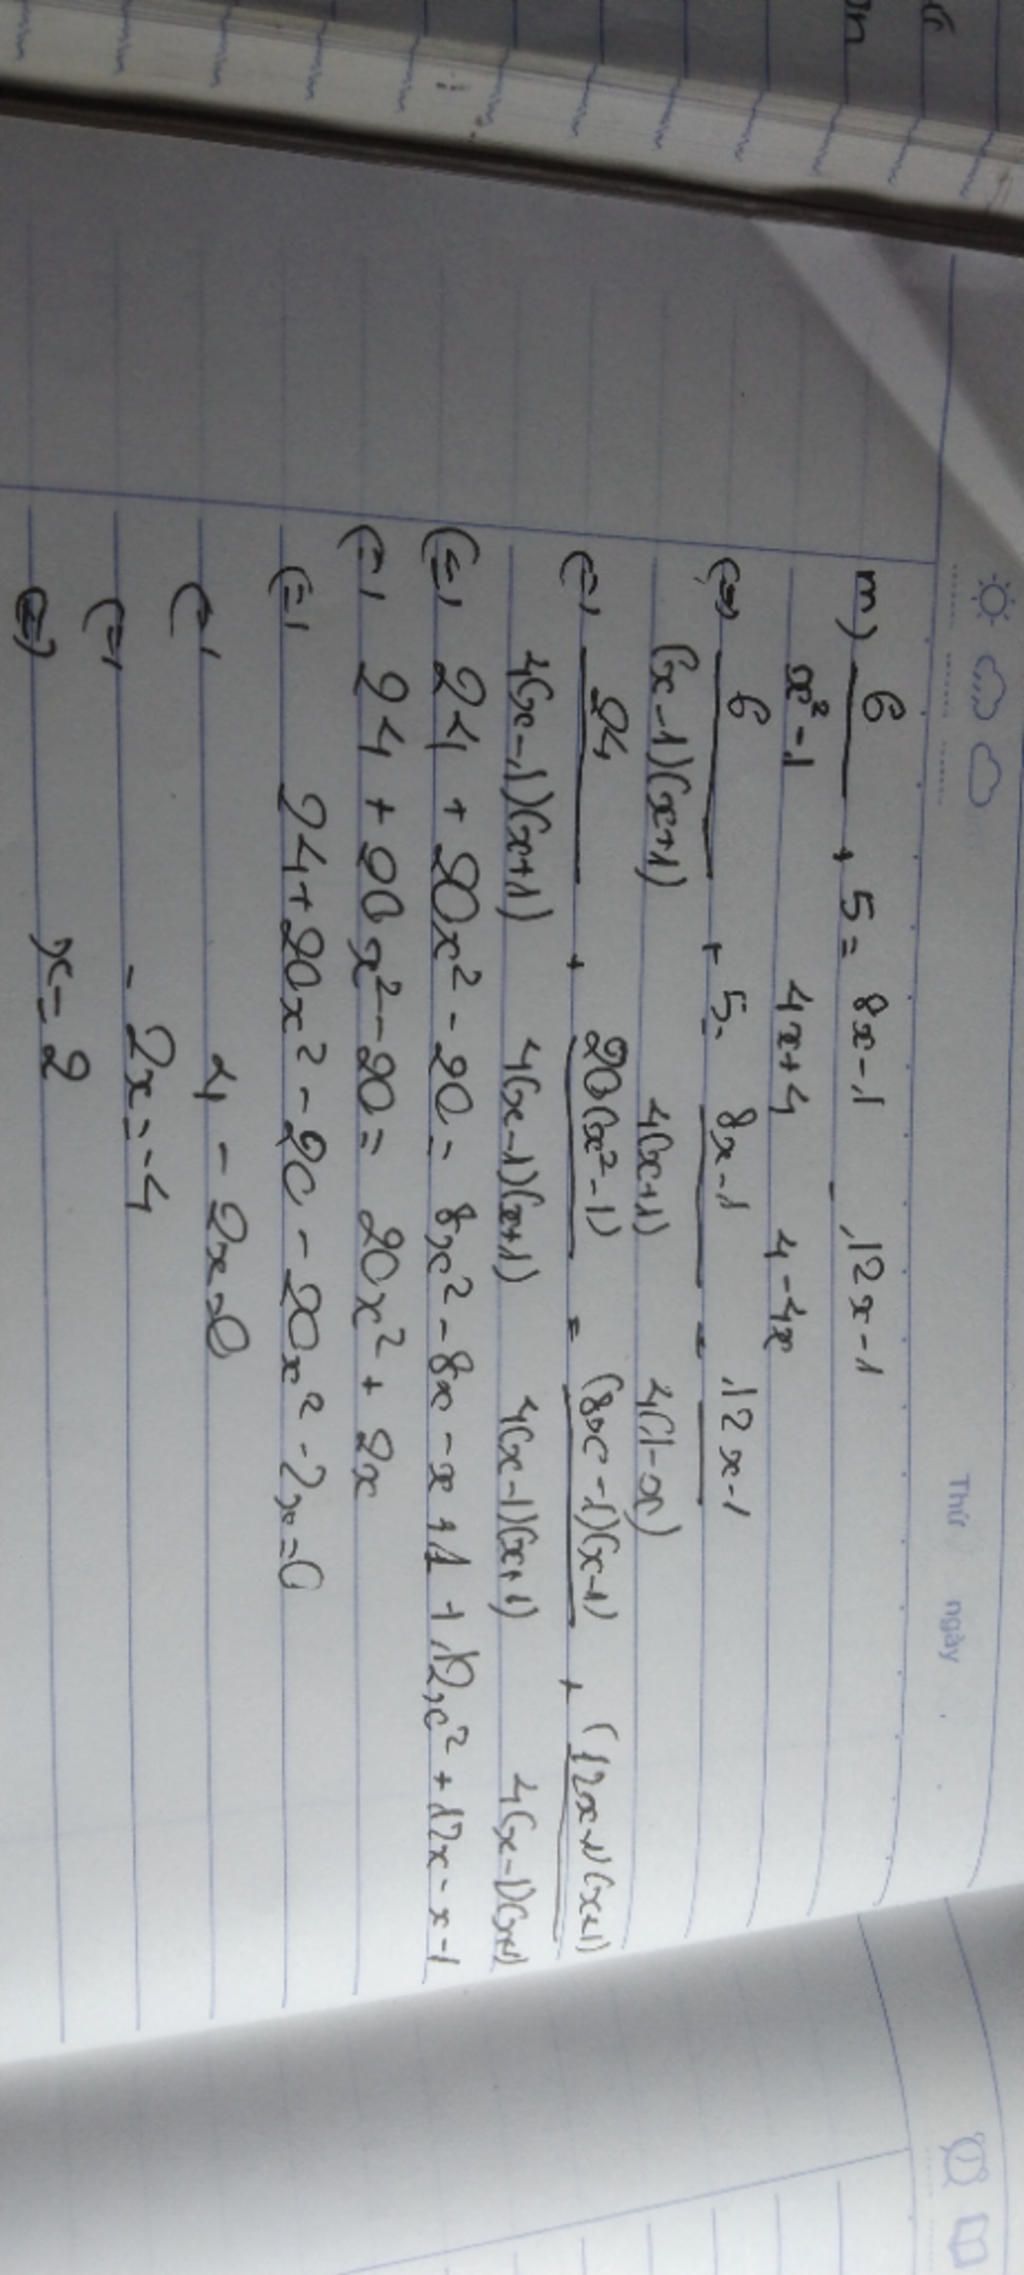 Thứ ngày
m) 6/(x²-1) + 5 = (8x-1)/(4x+4) - (12x-1)/(4-4x)
(=) 6/((x-1)(x+1)) + 5 = (8x-1)/(4(x+1)) - (12x-1)/(4(1-x))
(=) 24/(4(x-1)(x+1)) + 20(x²-1)/(4(x-1)(x+1)) = (8x-1)(x-1)/(4(x-1)(x+1)) + (12x-1)(x+1)/(4(x-1)(x+1))
(=) 24 + 20x² - 20 = 8x² - 8x - x + 1 + 12x² + 12x - x - 1
(=) 24 + 20x² - 20 = 20x² + 2x
(=) 24 + 20x² - 20 - 20x² - 2x = 0
(=) 4 - 2x = 0
(=) -2x = -4
(=) x = 2